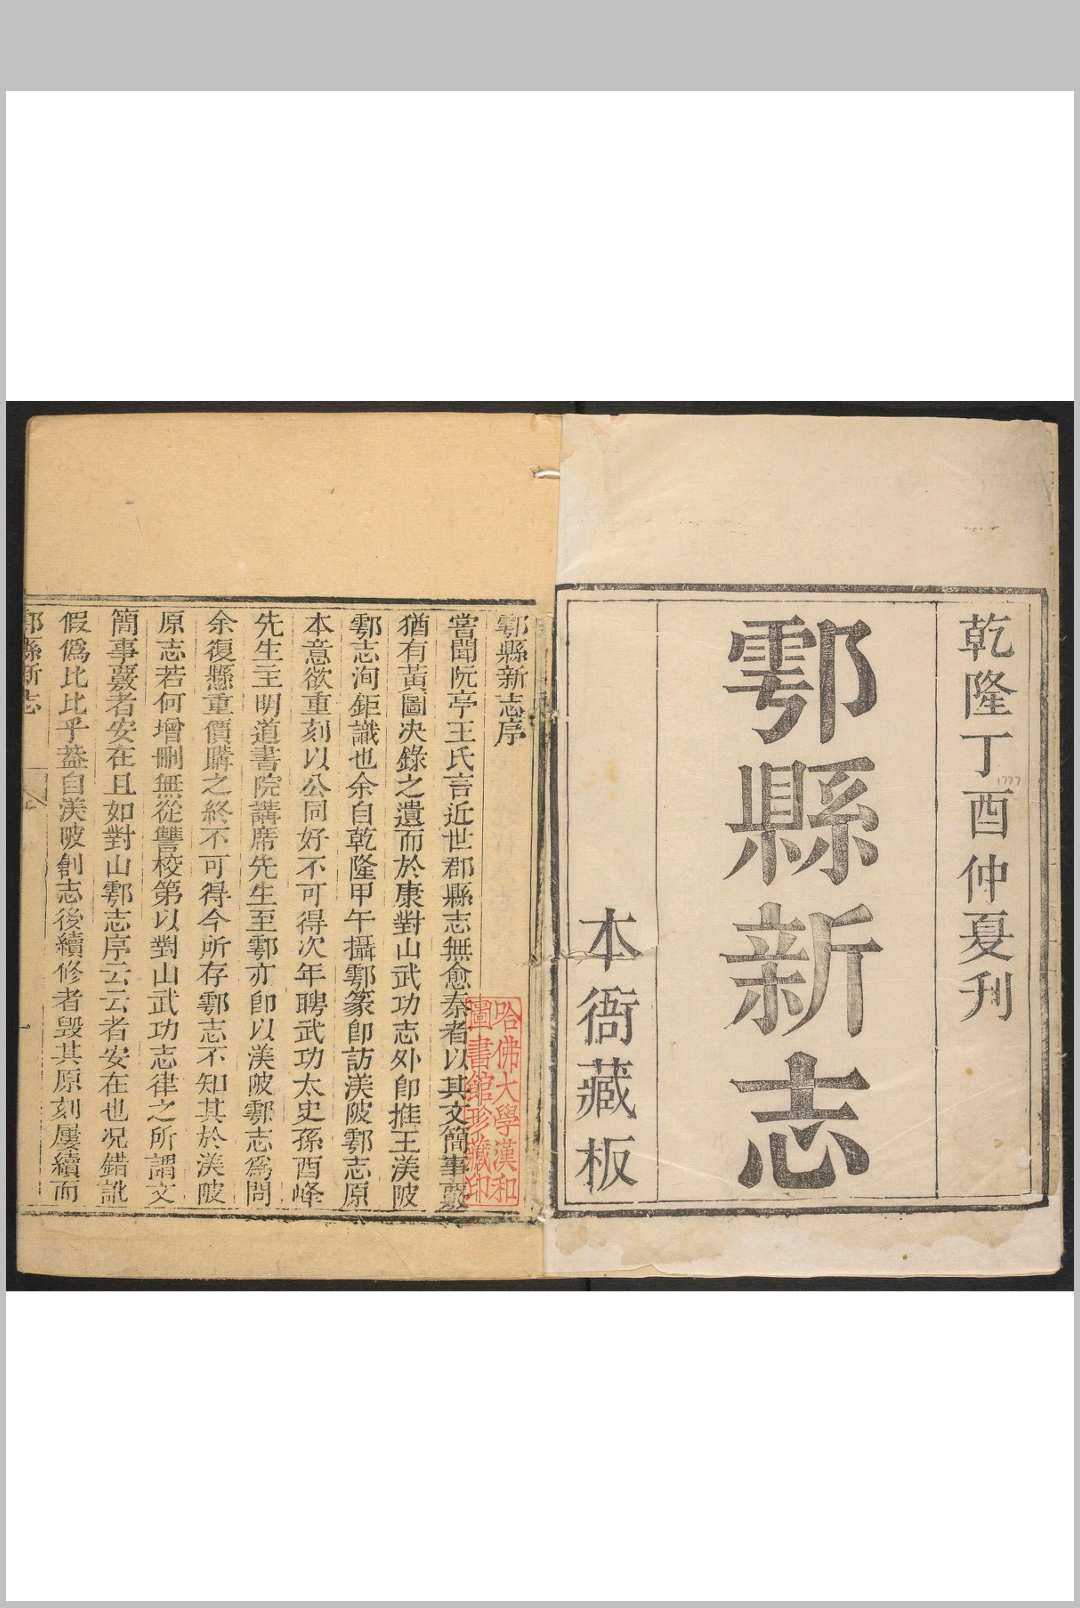 乾隆丁酉仲夏刊
1777
鄠縣新志
本衙藏板
鄠縣新志序
嘗聞阮亭王氏言近世郡縣志無愈秦者以其文簡事覈
猶有黃圖决錄之遺而於康對山武功志外卽推王渼陂
鄠志洵鉅識也余自乾隆甲午攝鄠篆卽訪渼陂鄠志原
本意欲重刻以公同好不可得次年聘武功太史孫酉峰
先生主明道書院講席先生至鄠亦卽以渼陂鄠志爲問
余復懸重價購之終不可得今所存鄠志不知其於渼陂
原志若何增刪無從讐校第以對山武功志律之所謂文
簡事覈者安在且如對山鄠志序云云者安在也况錯訛
假僞比比乎葢自渼陂創志後續修者毁其原刻屢續而
鄠縣新志
哈佛大學漢和
圖書館珍藏印